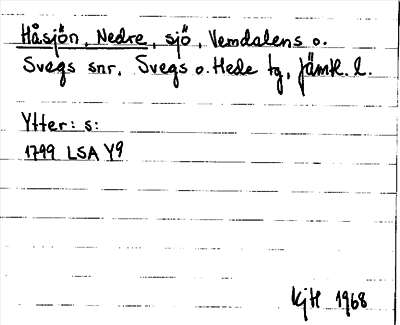 Håsjön, Nedre, sjö, Vemdalens o.
Svegs snr, Svegs o. Hede tg, Jämtl. l.
Ytter: s:
1799 LSA Y9
KjH 1968